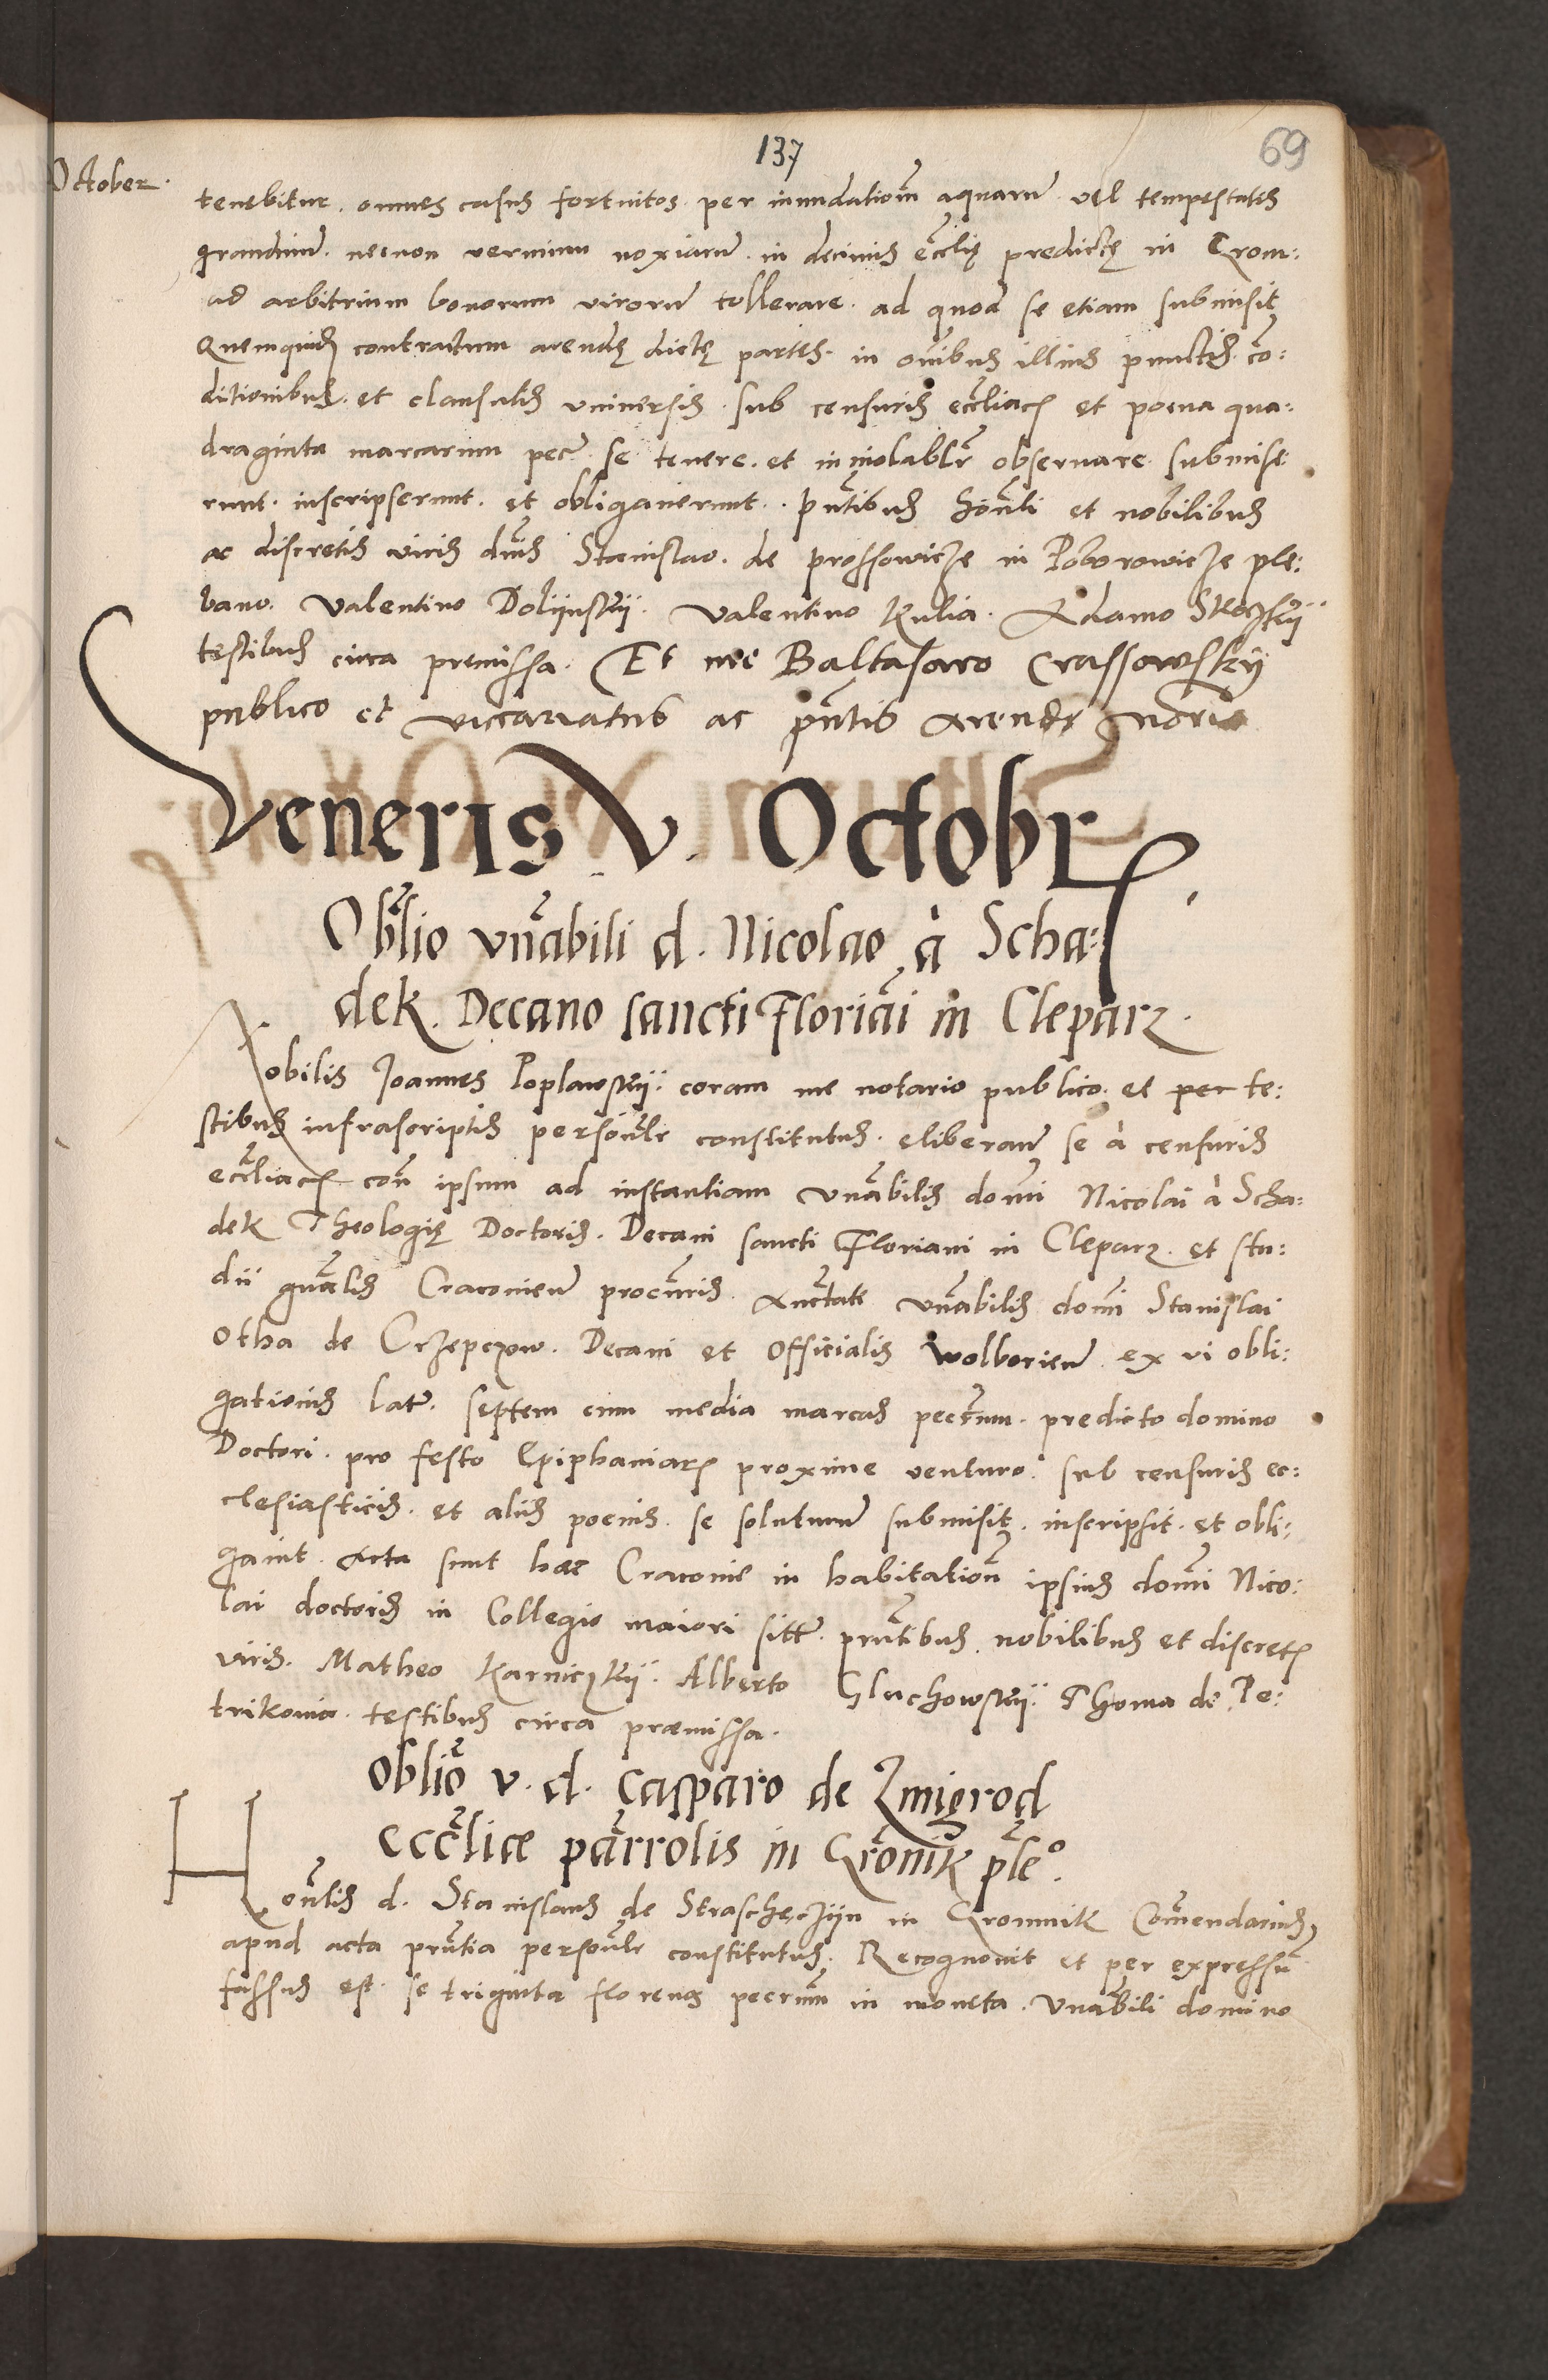 137
69
October.
tenebitur. omnes casus fortuitos. per inundationẽ aquarũ vel tempestates
grandinũ. necnon vermium noxiarũ. in decimis eccľię predictę in Crom:
ad arbitrium bonorum virorũ tollerare. ad quod se etiam submisit
Quemquidẽ contractum arendę dictę partes. in om̃ibus illius punctis. cõ:
ditionibus. et clausulis vniuersis. sub censuris eccľiacꝭ et poena qua:
draginta marcarum pec̃. se tenere. et inuiolabľr obseruare. submise:
runt. inscripserunt. et obligauerunt. pñtibus hoñli et nobilibus
ac discretis viris dñis Stanislao. de prossowicze in Poborowicze ple:
bano. Valentino Dolijnskij. Valentino Kulia. Adamo
testibus circa premissa. Et me Baltasaro Crassowskij
publico et viccariatus ac pñtis Arendę nõrio
Veneris V. Octobrꝭ.
Obľio vñabili d. Nicolao à Scha:
dek. Decano sancti Floriãi in Cleparz.
Nobilis Joannes Poplawskij. coram me notario publico. et per te:
stibus infrascriptis persoñlr constitutus. eliberanᵈ se à censuris
eccľiacꝭ con̄ ipsum ad instantiam vñabilis domi Nicolai à Scha:
dek Theologię Doctoris. Decani sancti Floriani in Cleparz. et stu:
dii gñalis Cracouieñ procuris. Auctate vñabilis domi Stanislai
Otha de Crzepczow. Decani et Officialis Wolborieñ. ex vi obli:
gationis latę. septem cum media marcas peccũm. predicto domino
Doctori. pro festo Epiphaniarꝭ proxime venturo. sub censuris ec:
clesiasticis. et aliis poenis. se soluturũ submisit. inscripsit. et obli:
gauit. Acta sunt haec Cracouie in habitatioñ ipsius domi Nico:
lai doctoris in Collegio maiori sitt̃. pñtibus. nobilibus et discretꝭ
viris. Matheo Karniczkij. Alberto Gluchowskij. Thoma de Pe:
trikouia. testibus circa praemissa.
Obliõ v. d. Casparo de Zmigrod
eccľiae parrolis in Gromnik pľeº.
Hoñlis d. Stanislaus de Straschęczijn in Gromnik Com̃endarius,
apud acta pñtia persoñlr constitutus. Recognouit et per expressũ
fassus est. se triginta florenos peccũm in moneta. vñabili domino